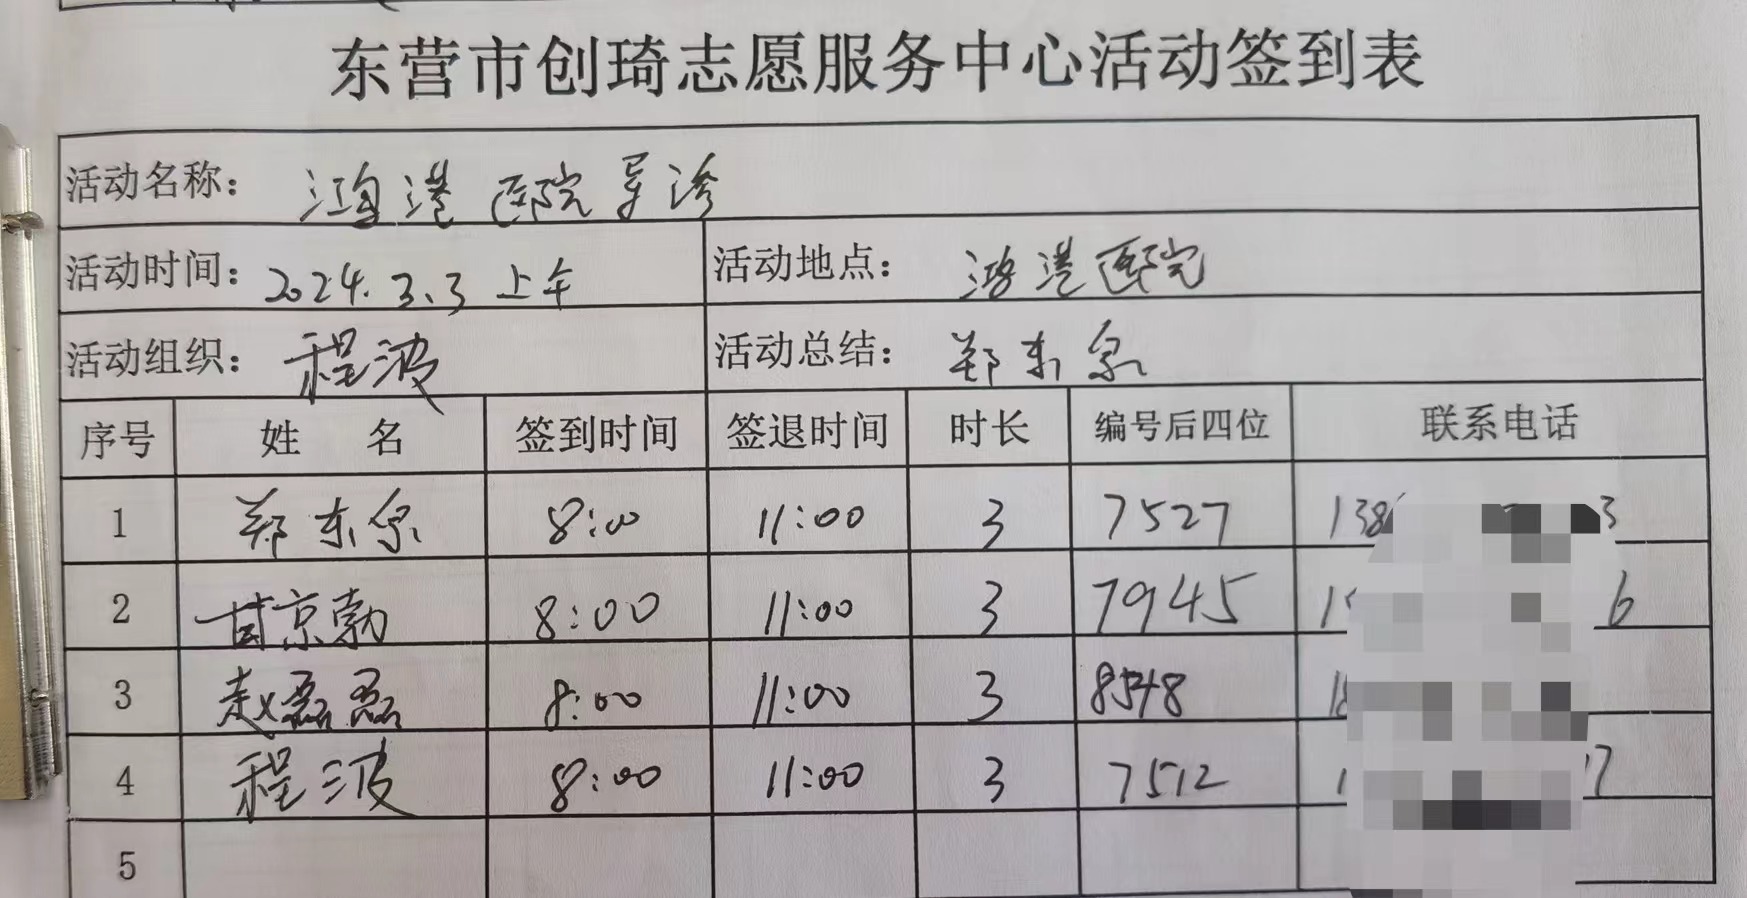 东营市创琦志愿服务中心活动签到表
活动名称： 鸿港医院导诊
活动时间：2024.3.3 上午 活动地点： 鸿港医院
活动组织：程波 活动总结： 郑东泉
序号 姓 名 签到时间 签退时间 时长 编号后四位 联系电话
1 郑东泉 8:00 11:00 3 7527 138 3
2 甘京勃 8:00 11:00 3 7945 1 6
3 赵磊磊 8:00 11:00 3 8548 18
4 程波 8:00 11:00 3 7512 1 7
5